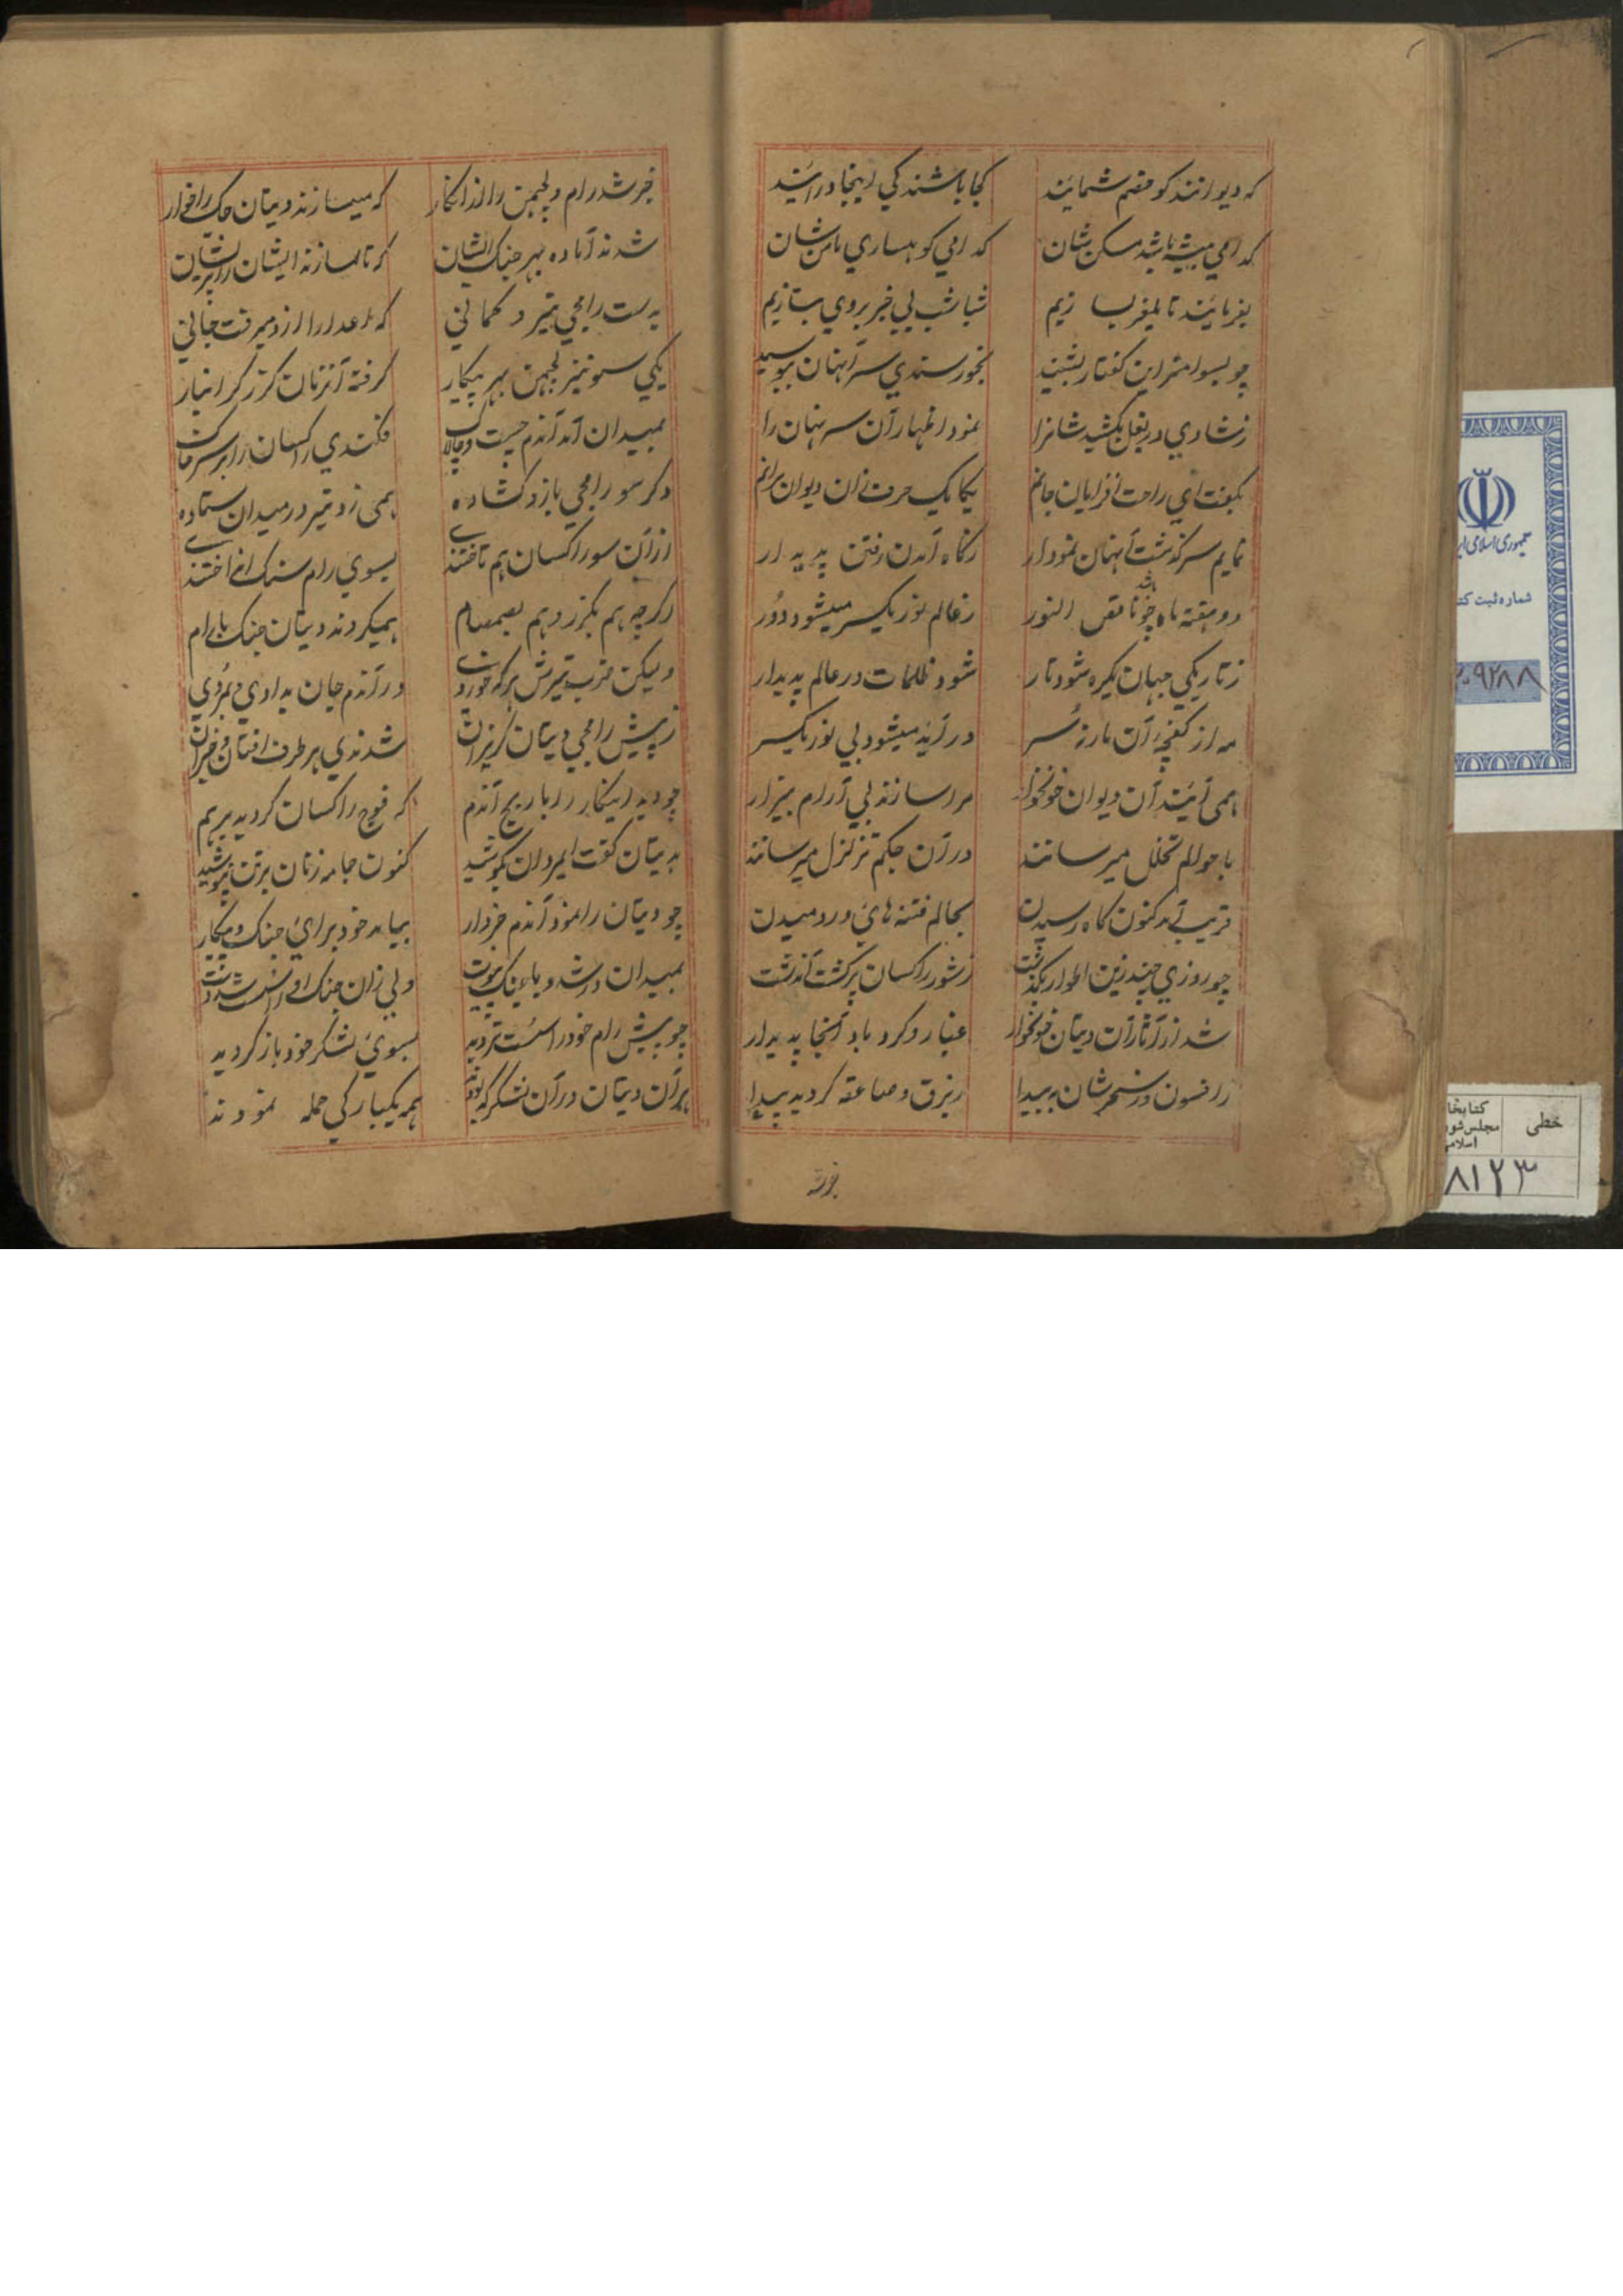 که دیوانند کو خصم شمایند کجا باشند کی اینجا در آیند
کدامی بیشه باشد مسکن شان کدامی کوهساری مامن شان
بفرمایند تا یلغر بسازیم شباشب بی خبر بروی بتازیم
چو بسوامتر این گفتار بشنید بخورسندی سر آنهان ببوسید
ز شادی در بغل بکشید شانرا نمود اظهار آن سر نهان را
بگفت ای راحت افزایان جانم یکایک حرف زان دیوان برانم
نمایم سرگذشت آنهان نمودار ز گاه آمدن رفتن پدیدار
دو هفته ماه چو باشد ناقص النور ز عالم نور یکسر میشود دور
ز تاریکی جهان یکره شود تار شود ظلمات در عالم پدیدار
مه از کفچهٔ آن مار سر در آید میشود بی نور یکسر
همی آیند آن دیوان خونخوار مرا سازند بی آرام بیزار
باحوالم تخلل میرسانند در آن جگم تزلزل میرسانند
قریب آمد کنون گاه رسیدن بحالم فتنه های در دمیدن
چو روزی چند زین اطوار بگذشت ز شور راکسان پر گشت آندشت
شد از آثار آن دیتان خونخوار غبار و گرد باد آنجا پدیدار
ز افسون وز سحر شان به بیدا ز برق و صاعقه گردید پیدا
خبر شد رام و لچمن را از انکار که میسازند دیتان جک را خوار
شدند آماده بهر جنک ایشان که تا سازند ایشان را پریشان
بدست رامجی تیر و کمانی که اعدا را ازو میرفت جانی
یکی سو نیز لچمن بهر پیکار گرفته آنزمان گرز گرانبار
بمیدان آمد آندم چست و چالاک فکندی راکسان را بر سر خاک
دگر سو رامجی بازو گشاده همی زد تیر در میدان ستاده
از آن سو راکسان هم تاختندی بسوی رام سنگ انداختندی
گرچه هم بگرز و هم بصمصام همیکردند دیتان جنک با رام
ولیکن ضرب تیرش هر که خوردی در آندم جان بدادی و بمردی
ز پیش رامجی دیتان گریزان شدندی هر طرف افتان و خیزان
چو دید اینکار را ماریچ آندم که فوج راکسان گردید برهم
به دیتان گفت ایمردان بکوشید کنون جامه زنان بر تن بپوشید
چو دیتان را نمود آندم خبردار بیامد خود برای جنک و پیکار
بمیدان در شد و با رام پیوست ولی زان جنک او را شست شد دست
چو پیش رام خود را سست تر دید بسوی لشکر خود باز گردید
بر آن دیتان در آن لشکر که بودند همه یکبارگی حمله نمودند
خبر شد
جمهوری اسلامی
شماره ثبت
۹۲۸۸
خطی
کتابخا
مجلس شو
اسلام
۸۱۲۳